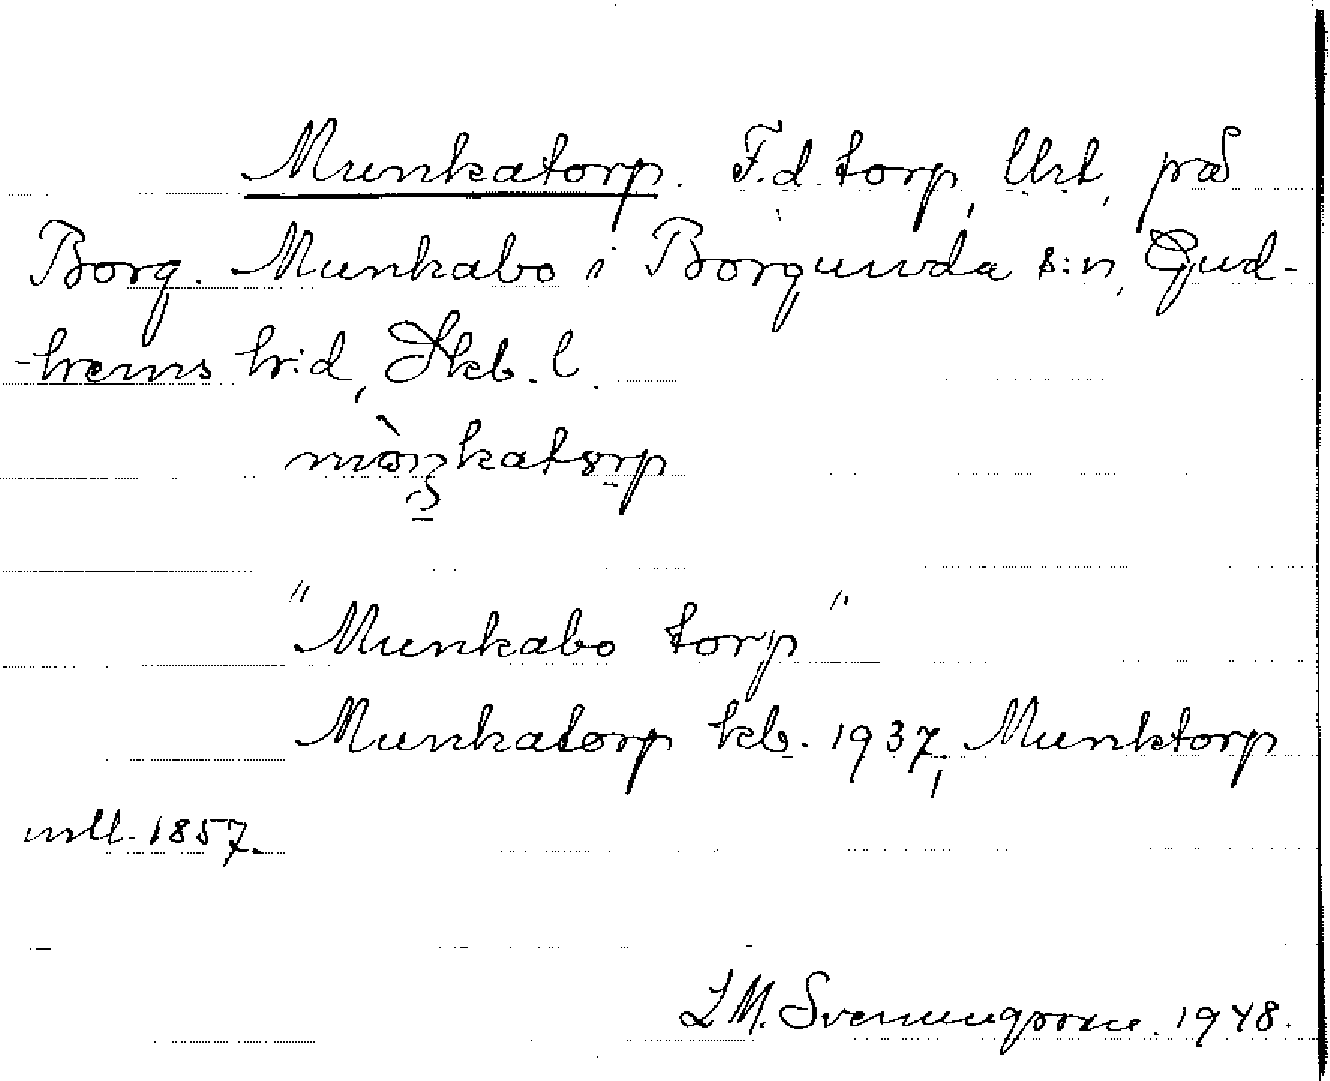 Munkatorp. F.d. torp, Urt, på
Borg. Munkabo i Borgunda s:n, Gud-
-hems h:d, Skb. l.
"Munkabo torp"
Munkatorp kb. 1937, Munktorp
mll. 1857.
L M. Svenungsson. 1948.